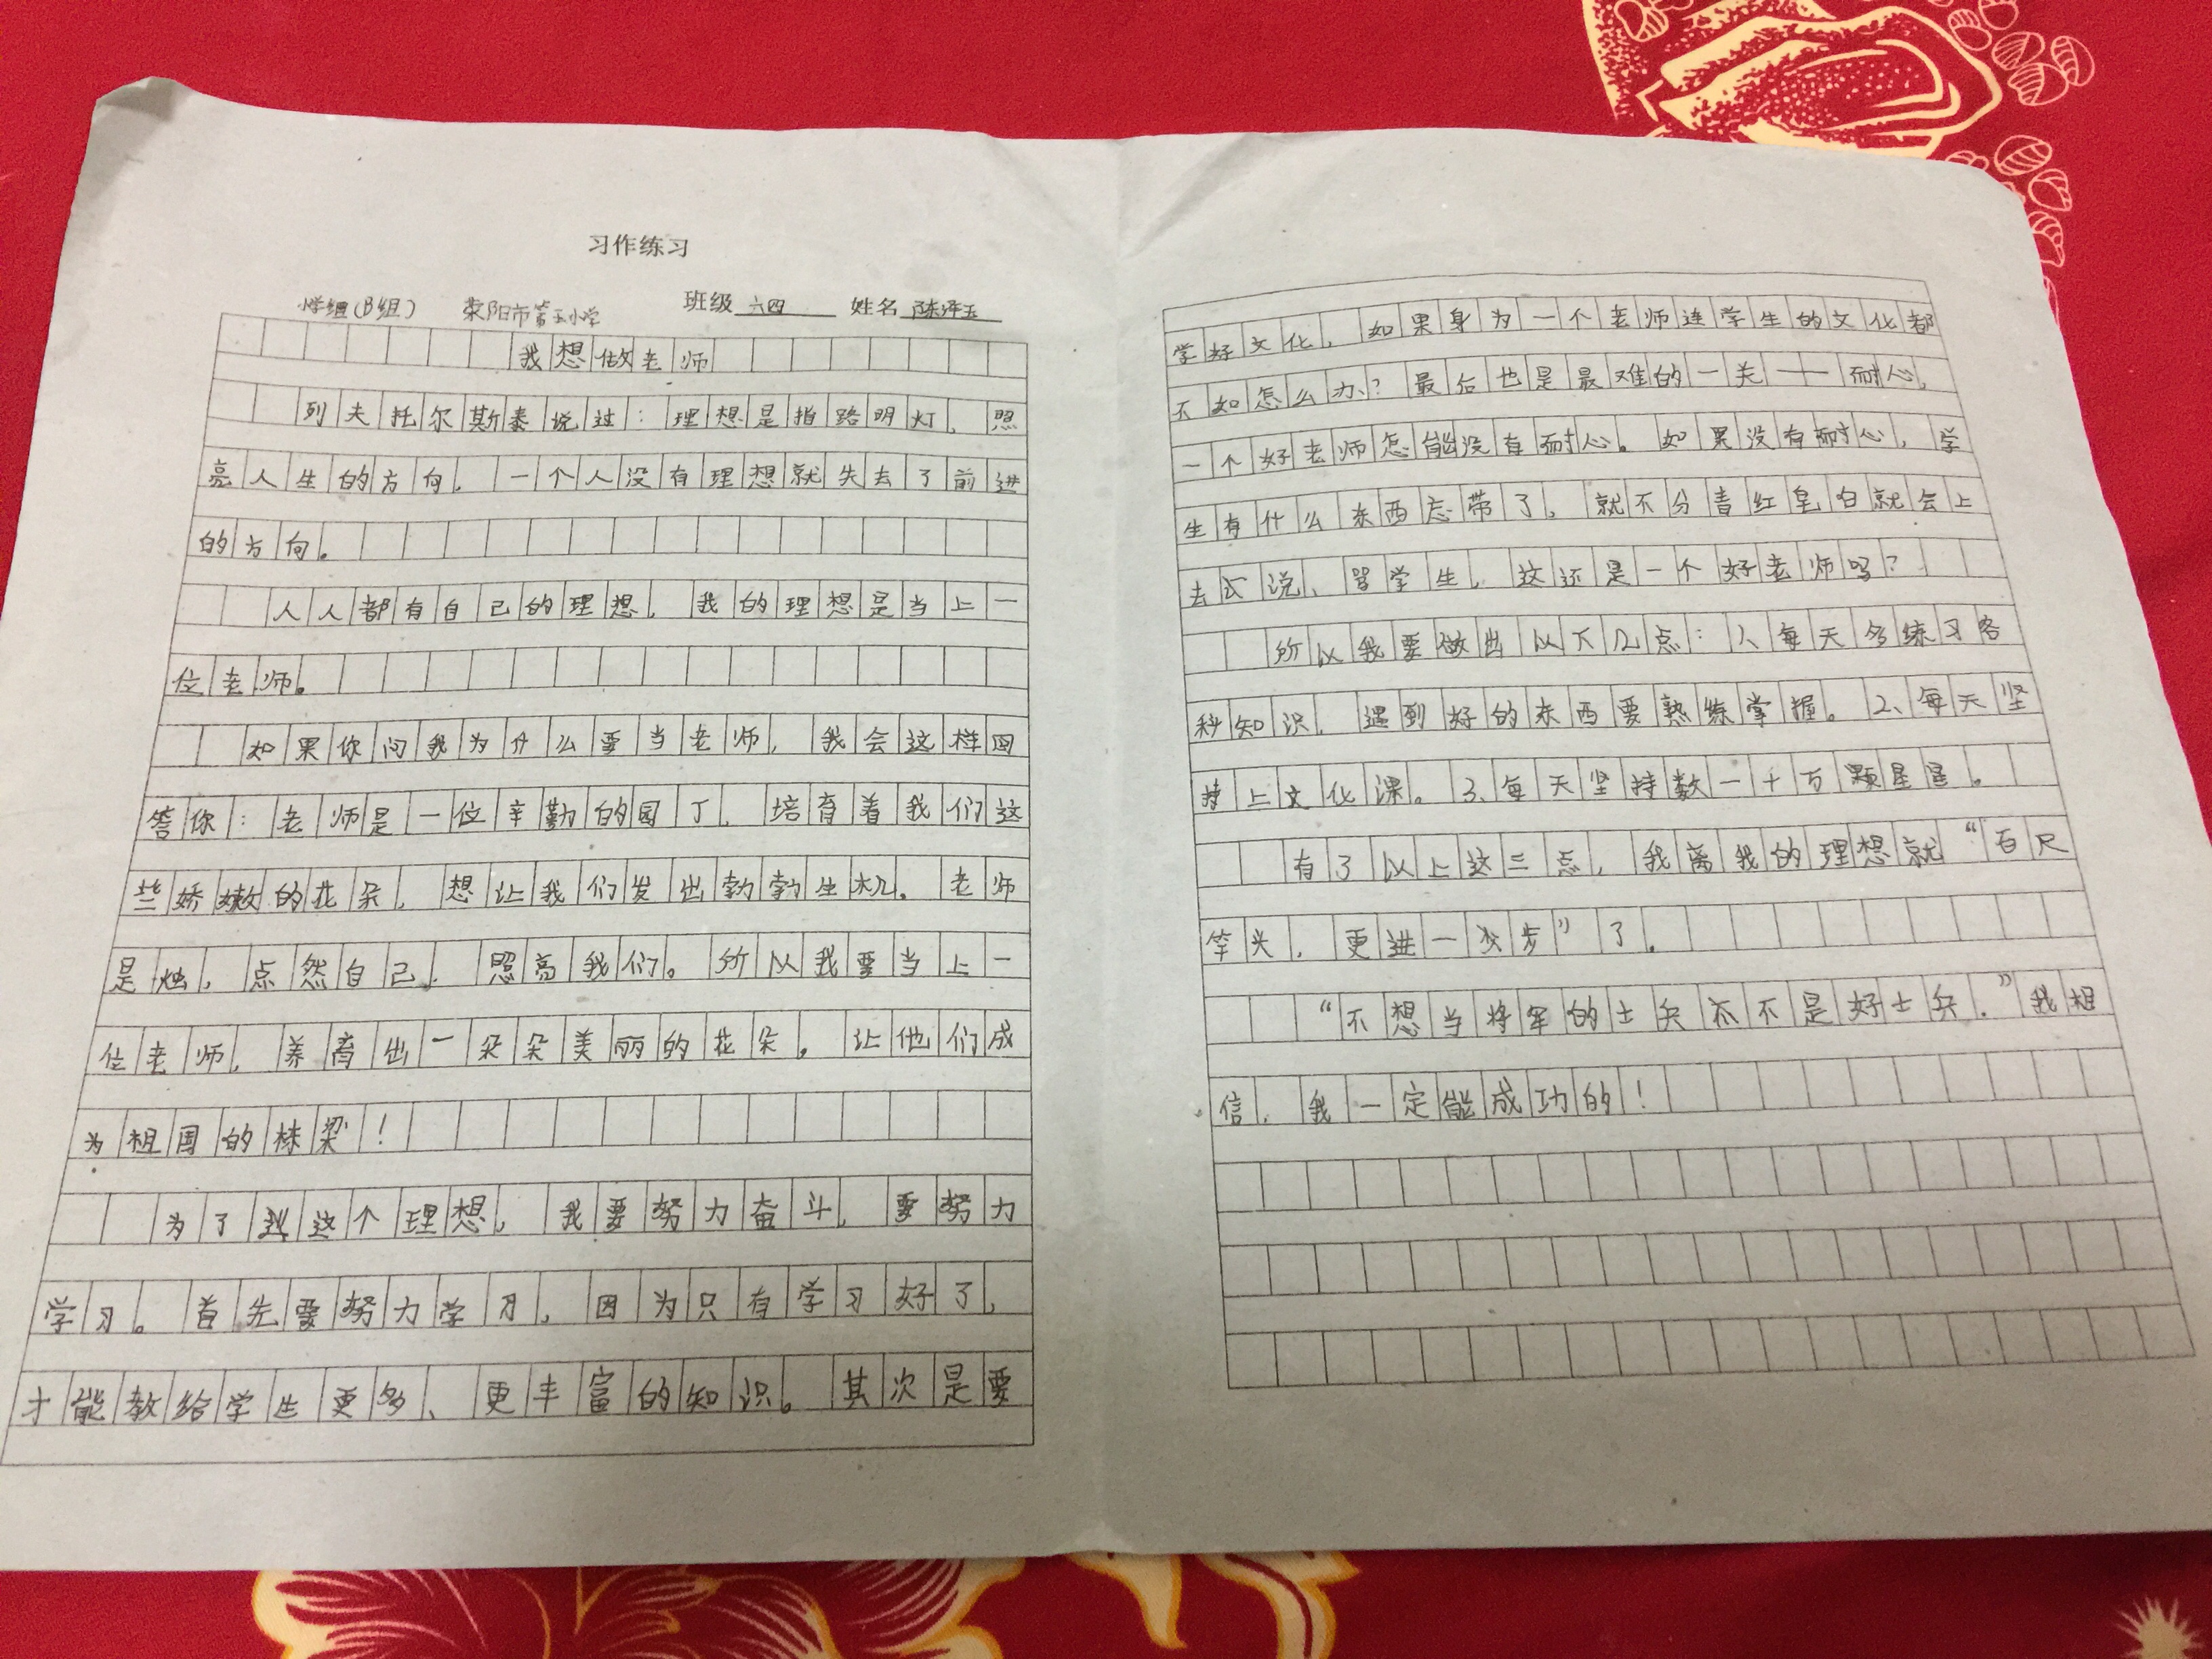 习作练习
小学组(B组) 荥阳市第五小学 班级 六四 姓名 陈泽玉
我想做老师
列夫托尔斯泰说过:理想是指路明灯。照
亮人生的方向,一个人没有理想就失去了前进
的方向。
人人都有自己的理想,我的理想是当上一
位老师。
如果你问我为什么要当老师,我会这样回
答你:老师是一位辛勤的园丁,培育着我们这
些娇嫩的花朵,想让我们发出勃勃生机。老师
是烛,点然自己,照亮我们。所以我要当上一
位老师,养育出一朵朵美丽的花朵。让他们成
为祖国的栋梁!
为了这个理想,我要努力奋斗,要努力
学习。首先要努力学习,因为只有学习好了,
才能教给学生更多、更丰富的知识。其次是要
学好文化,如果身为一个老师连学生的文化都
不如怎么办?最后也是最难的一关——耐心,
一个好老师怎能没有耐心。如果没有耐心,学
生有什么东西忘带了,就不分青红皂白就会上
去说、骂学生,这还是一个好老师吗?
所以我要做出以下几点:1、每天多练习各
种知识,遇到好的东西要熟练掌握。2、每天坚
持上文化课。3、每天坚持数一十万颗星星。
有了以上这三点,我离我的理想就“百尺
竿头,更进一步”了。
“不想当将军的士兵不是好士兵.”我相
信,我一定能成功的!